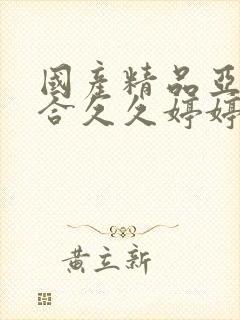 國產精品亞
合久久婷婷
黃立新